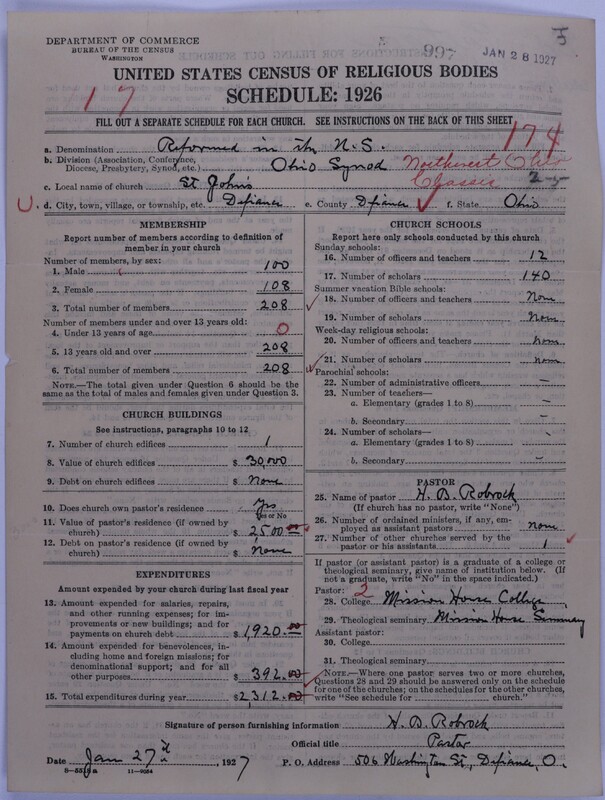 DEPARTMENT OF COMMERCE
BUREAU OF THE CENSUS
WASHINGTON
997 JAN 28 1927
UNITED STATES CENSUS OF RELIGIOUS BODIES
SCHEDULE: 1926
17
FILL OUT A SEPARATE SCHEDULE FOR EACH CHURCH. SEE INSTRUCTIONS ON THE BACK OF THIS SHEET
174
a. Denomination Reformed in the U.S.
b. Division (Association, Conference, Diocese, Presbytery, Synod, etc.) Ohio Synod Northwest Ohio Classis
c. Local name of church St. John's
U. d. City, town, village, or township, etc. Defiance e. County Defiance f. State Ohio
MEMBERSHIP
Report number of members according to definition of
member in your church
Number of members, by sex:
1. Male 100
2. Female 108
3. Total number of members 208
Number of members under and over 13 years old:
4. Under 13 years of age 0
5. 13 years old and over 208
6. Total number of members 208
NOTE.—The total given under Question 6 should be
same as the total of males and females given under Question 3.
CHURCH BUILDINGS
See instructions, paragraphs 10 to 12
7. Number of church edifices 1
8. Value of church edifices $ 30,000
9. Debt on church edifices $ None
10. Does church own pastor's residence? Yes
Yes or No
11. Value of pastor's residence (if owned by
church) $ 2500.00
12. Debt on pastor's residence (if owned by
church) $ None
EXPENDITURES
Amount expended by your church during last fiscal year
13. Amount expended for salaries, repairs,
and other running expenses; for im-
provements or new buildings; and for
payments on church debt $ 1,920.00
14. Amount expended for benevolences, in-
cluding home and foreign missions; for
denominational support; and for all
other purposes $ 392.00
15. Total expenditures during year $ 2,312.00
CHURCH SCHOOLS
Report here only schools conducted by this church
Sunday schools:
16. Number of officers and teachers 12
17. Number of scholars 140
Summer vacation Bible schools:
18. Number of officers and teachers None
19. Number of scholars None
Week-day religious schools:
20. Number of officers and teachers None
21. Number of scholars None
Parochial schools:
22. Number of administrative officers –
23. Number of teachers—
a. Elementary (grades 1 to 8) –
b. Secondary –
24. Number of scholars—
a. Elementary (grades 1 to 8) –
b. Secondary –
PASTOR
25. Name of pastor H. B. Robrock
(If church has no pastor, write "None")
26. Number of ordained ministers, if any, em-
ployed as assistant pastors none
27. Number of other churches served by the
pastor or his assistants 1
If pastor (or assistant pastor) is a graduate of a college or
theological seminary, give name of institution below. (If
not a graduate, write "No" in the space indicated.)
Pastor: 2
28. College Mission House College
29. Theological seminary Mission House Seminary
Assistant pastor:
30. College
31. Theological seminary
NOTE.—Where one pastor serves two or more churches,
Questions 28 and 29 should be answered only on the schedule
for one of the churches; on the schedules for the other churches,
write "See schedule for church."
Signature of person furnishing information H. B. Robrock
Official title Pastor
Date Jan 27th, 1927 P. O. Address 506 Washington St., Defiance, O.
11—9054